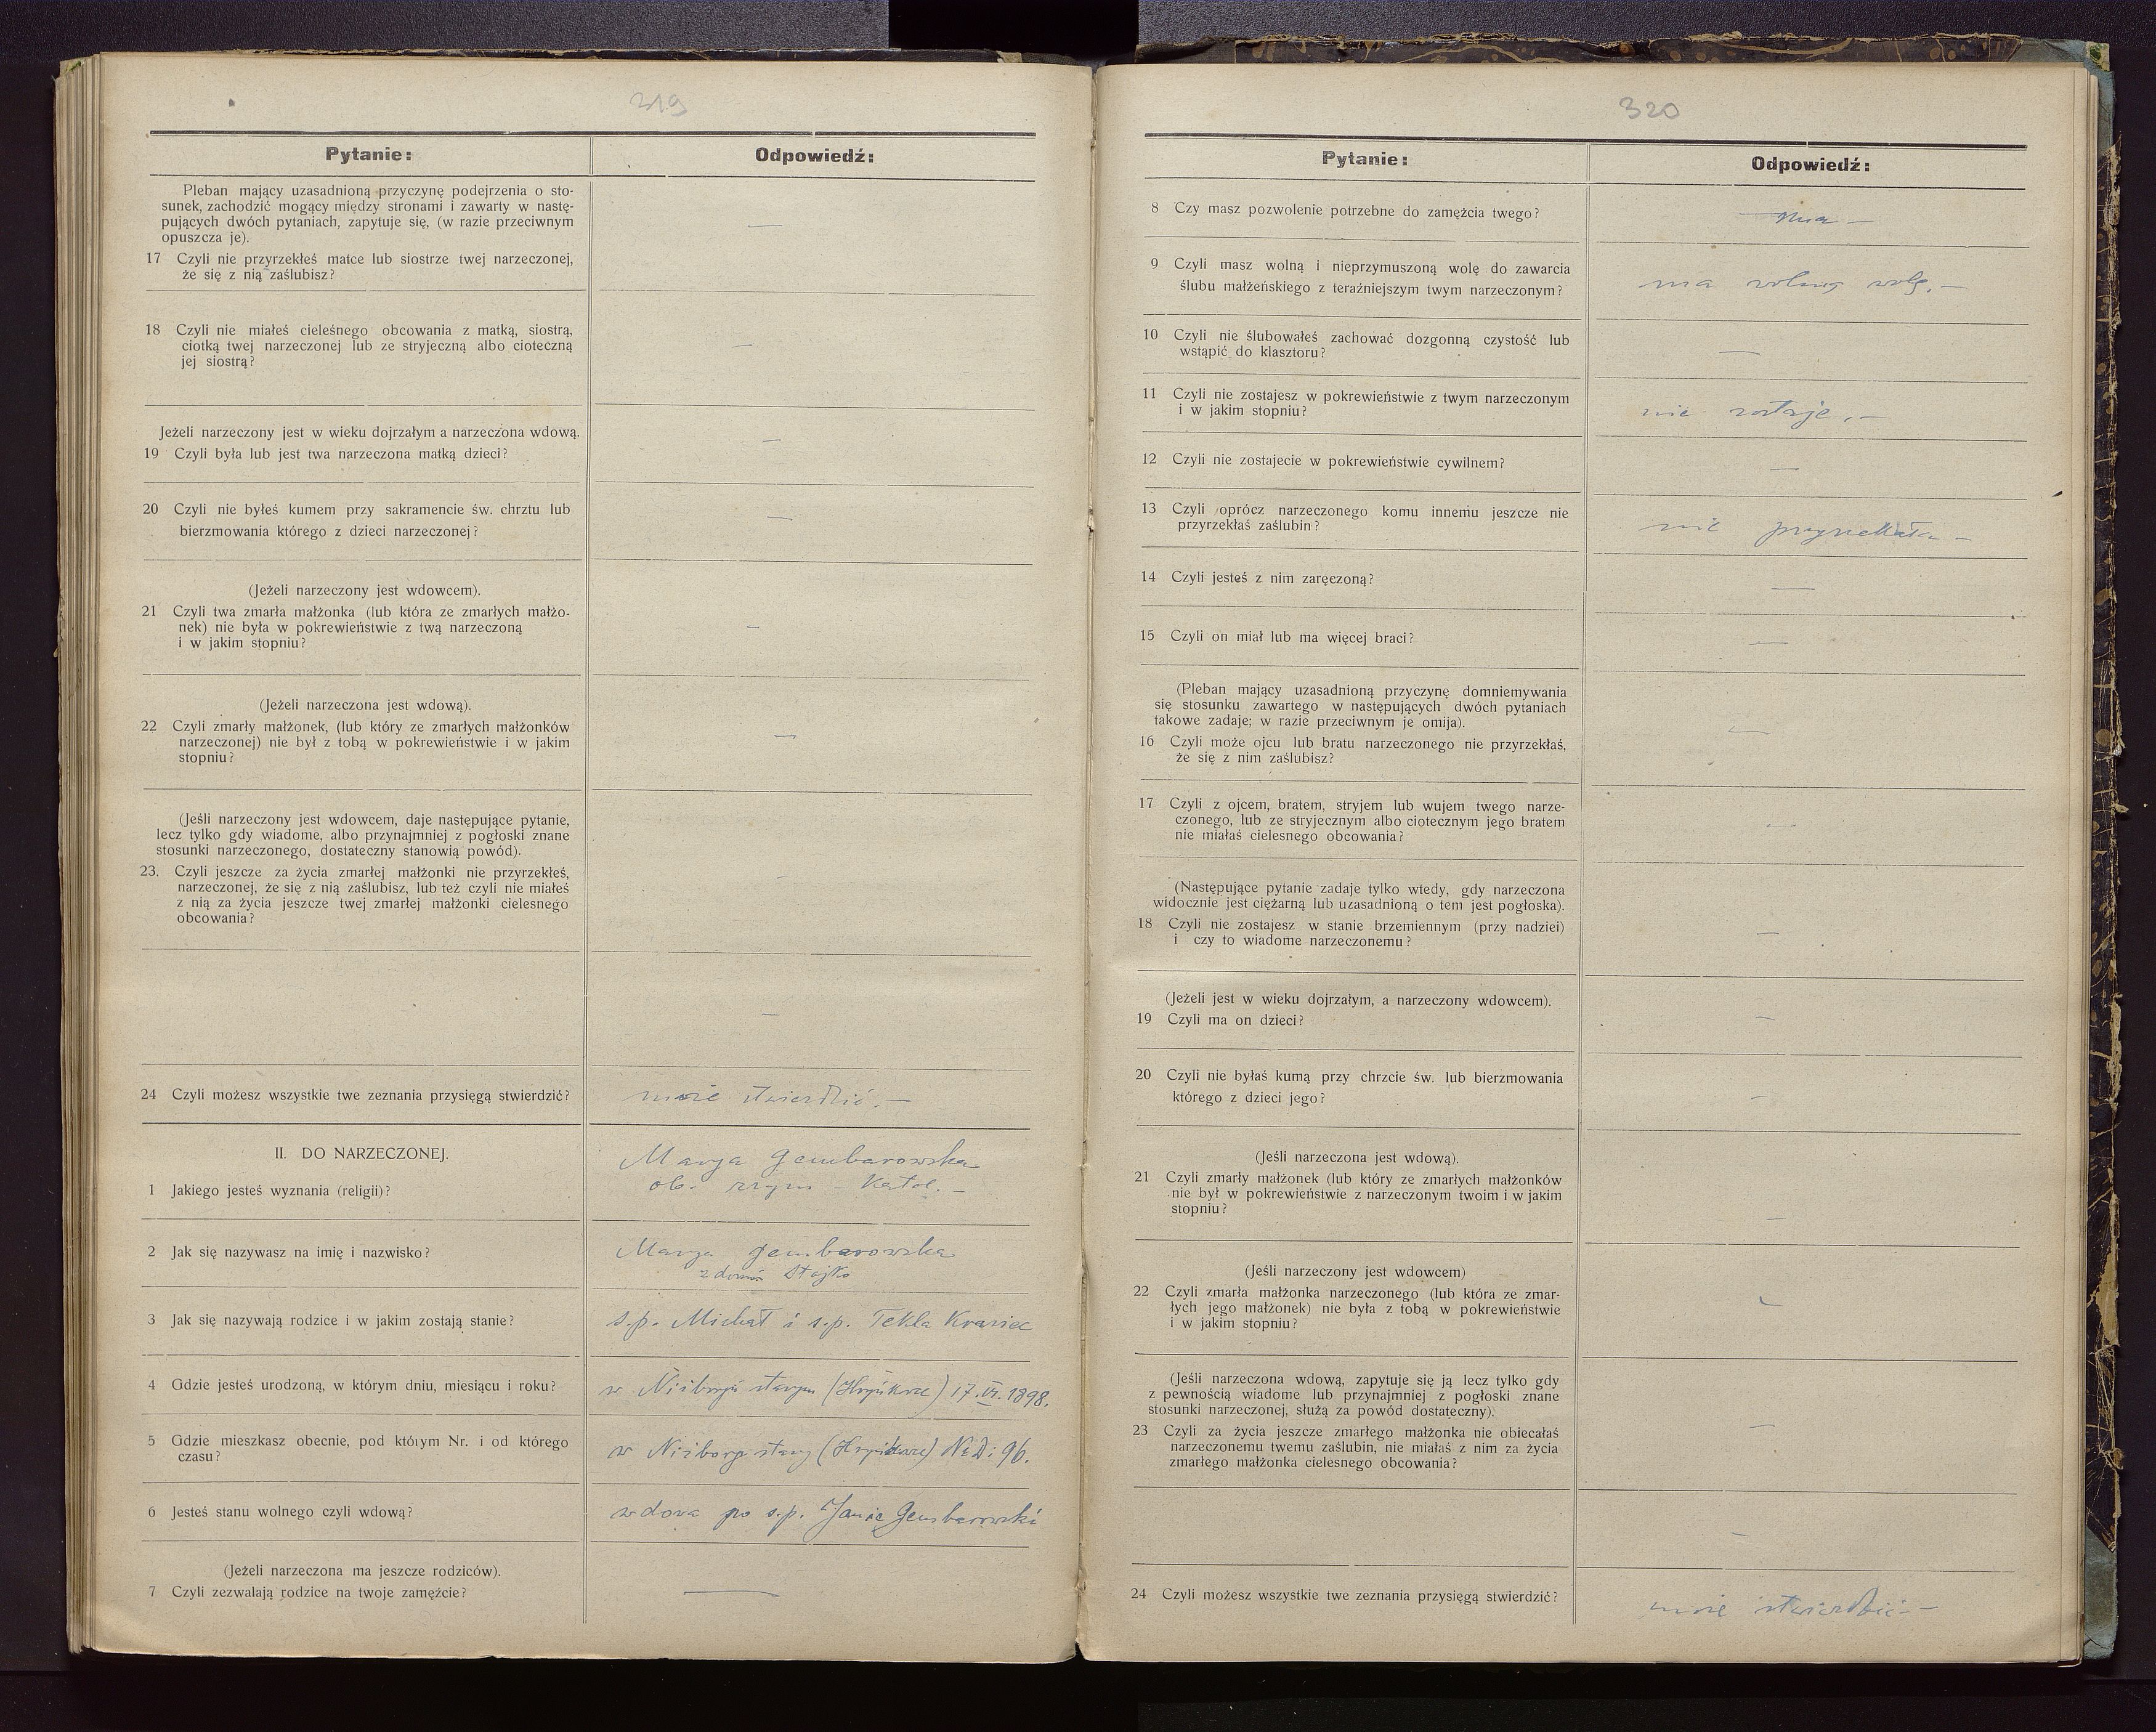 319
Pytanie:
Odpowiedź:
Pleban mający uzasadnioną przyczynę podejrzenia o sto-
sunek, zachodzić mogący między stronami i zawarty w nastę-
pujących dwóch pytaniach, zapytuje się, (w razie przeciwnym
opuszcza je).
—
17 Czyli nie przyrzekłeś matce lub siostrze twej narzeczonej,
że się z nią zaślubisz?
18 Czyli nie miałeś cieleśnego obcowania z matką, siostrą,
ciotką twej narzeczonej lub ze stryjeczną albo cioteczną
jej siostrą?
—
Jeżeli narzeczony jest w wieku dojrzałym a narzeczona wdową.
19 Czyli była lub jest twa narzeczona matką dzieci?
—
20 Czyli nie byłeś kumem przy sakramencie św. chrztu lub
bierzmowania którego z dzieci narzeczonej?
—
(Jeżeli narzeczony jest wdowcem).
21 Czyli twa zmarła małżonka (lub która ze zmarłych małżo-
nek) nie była w pokrewieństwie z twą narzeczoną
i w jakim stopniu?
—
(Jeżeli narzeczona jest wdową).
22 Czyli zmarły małżonek, (lub który ze zmarłych małżonków
narzeczonej) nie był z tobą w pokrewieństwie i w jakim
stopniu?
—
(Jeśli narzeczony jest wdowcem, daje następujące pytanie,
lecz tylko gdy wiadome, albo przynajmniej z pogłoski znane
stosunki narzeczonego, dostateczny stanowią powód).
23. Czyli jeszcze za życia zmarłej małżonki nie przyrzekłeś,
narzeczonej, że się z nią zaślubisz, lub też czyli nie miałeś
z nią za życia jeszcze twej zmarłej małżonki cielesnego
obcowania?
—
—
24 Czyli możesz wszystkie twe zeznania przysięgą stwierdzić?
może stwierdzić. —
II. DO NARZECZONEJ.
1 Jakiego jesteś wyznania (religii)?
Marya Gembarowska
ob. rzym - Katol. —
2 Jak się nazywasz na imię i nazwisko?
Marya Gembarowska
z domu Stojko
3 Jak się nazywają rodzice i w jakim zostają stanie?
s.p. Michał i s.p. Tekla Krawiec
4 Gdzie jesteś urodzoną, w którym dniu, miesiącu i roku?
w Niżborgu starym 17.VI.1898.
5 Gdzie mieszkasz obecnie, pod którym Nr. i od którego
czasu?
w Niżborg stary № D: 96.
6 Jesteś stanu wolnego czyli wdową?
wdowa po s.p. Janie Gembarowski
(Jeżeli narzeczona ma jeszcze rodziców).
7 Czyli zezwalają rodzice na twoje zamęźcie?
—
320
Pytanie:
Odpowiedź:
8 Czy masz pozwolenie potrzebne do zamężcia twego?
— ma —
9 Czyli masz wolną i nieprzymuszoną wolę do zawarcia
ślubu małżeńskiego z teraźniejszym twym narzeczonym?
ma wolną wolę. —
10 Czyli nie ślubowałeś zachować dozgonną czystość lub
wstąpić do klasztoru?
—
11 Czyli nie zostajesz w pokrewieństwie z twym narzeczonym
i w jakim stopniu?
nie zostaje. —
12 Czyli nie zostajecie w pokrewieństwie cywilnem?
—
13 Czyli oprócz narzeczonego komu innemu jeszcze nie
przyrzekłaś zaślubin?
nie przyrzekała —
14 Czyli jesteś z nim zaręczoną?
—
15 Czyli on miał lub ma więcej braci?
—
(Pleban mający uzasadnioną przyczynę domniemywania
się stosunku zawartego w następujących dwóch pytaniach
takowe zadaje; w razie przeciwnym je omija).
16 Czyli może ojcu lub bratu narzeczonego nie przyrzekłaś,
że się z nim zaślubisz?
—
17 Czyli z ojcem, bratem, stryjem lub wujem twego narze-
czonego, lub ze stryjecznym albo ciotecznym jego bratem
nie miałaś cielesnego obcowania?
—
(Następujące pytanie zadaje tylko wtedy, gdy narzeczona
widocznie jest ciężarną lub uzasadnioną o tem jest pogłoska).
18 Czyli nie zostajesz w stanie brzemiennym (przy nadziei)
i czy to wiadome narzeczonemu?
—
(Jeżeli jest w wieku dojrzałym, a narzeczony wdowcem).
19 Czyli ma on dzieci?
—
20 Czyli nie byłaś kumą przy chrzcie św. lub bierzmowania
którego z dzieci jego?
—
(Jeśli narzeczona jest wdową).
21 Czyli zmarły małżonek (lub który ze zmarłych małżonków
nie był w pokrewieństwie z narzeczonym twoim i w jakim
stopniu?
—
(Jeśli narzeczony jest wdowcem)
22 Czyli zmarła małżonka narzeczonego (lub która ze zmar-
łych jego małżonek) nie była z tobą w pokrewieństwie
i w jakim stopniu?
—
(Jeśli narzeczona wdową, zapytuje się ją lecz tylko gdy
z pewnością wiadome lub przynajmniej z pogłoski znane
stosunki narzeczonej, służą za powód dostateczny).
23 Czyli za życia jeszcze zmarłego małżonka nie obiecałaś
narzeczonemu twemu zaślubin, nie miałaś z nim za życia
zmarłego małżonka cielesnego obcowania?
—
—
24 Czyli możesz wszystkie twe zeznania przysięgą stwierdzić?
może stwierdzić —